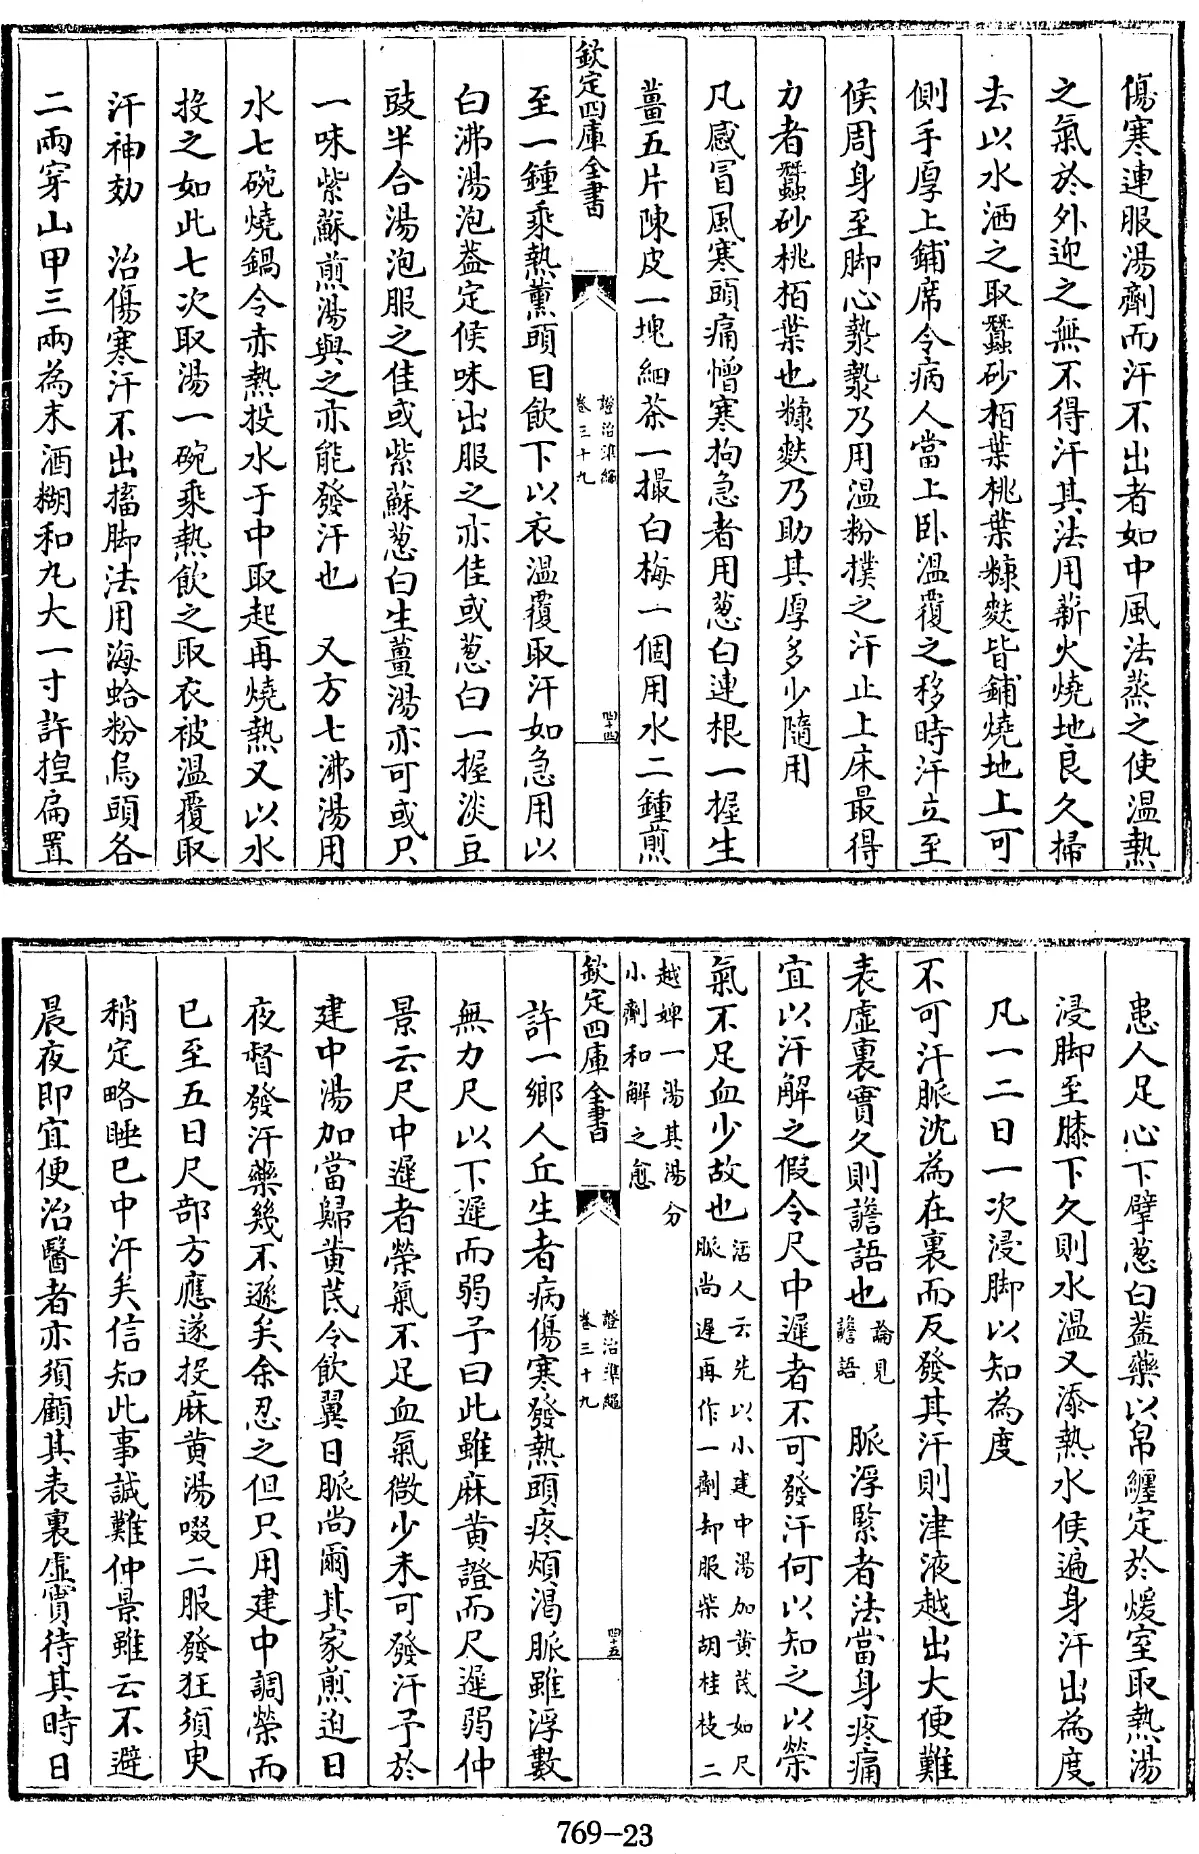 傷寒連服湯劑而汗不出者如中風法蒸之使温熱
之氣於外迎之無不得汗其法用薪火燒地良久掃
去以水洒之取蠶砂栢葉桃葉糠麩皆鋪燒地上可
側手厚上鋪席令病人當上卧温覆之移時汗立至
候周身至脚心漐漐乃用温粉撲之汗止上床最得
力者蠶砂桃栢葉也糠麩乃助其厚多少隨用
凡感冒風寒頭痛憎寒拘急者用葱白連根一握生
薑五片陳皮一塊細茶一撮白梅一個用水二鍾煎
欽定四庫全書
證治準繩
卷三十九
四十四
至一鍾乘熱薰頭目飲下以衣温覆取汗如急用以
白沸湯泡葢定候味出服之亦佳或葱白一握淡豆
豉半合湯泡服之佳或紫蘇葱白生薑湯亦可或只
一味紫蘇煎湯與之亦能發汗也 又方七沸湯用
水七碗燒鍋令赤熱投水于中取起再燒熱又以水
投之如此七次取湯一碗乘熱飲之取衣被温覆取
汗神効 治傷寒汗不出搐脚法用海蛤粉烏頭各
二兩穿山甲三兩為末酒糊和丸大一寸許揑扁置
患人足心下擘葱白蓋藥以帛纏定於煖室取熱湯
浸脚至膝下久則水温又添熱水候遍身汗出為度
凡一二日一次浸脚以知為度
不可汗脈沈為在裏而反發其汗則津液越出大便難
表虚裏實久則譫語也論見
譫語 脈浮緊者法當身疼痛
宜以汗解之假令尺中遲者不可發汗何以知之以榮
氣不足血少故也活人云先以小建中湯加黄芪如尺
脈尚遲再作一劑却服柴胡桂枝二
越婢一湯其湯分
小劑和解之愈
欽定四庫全書
證治準繩
卷三十九
四十五
許一鄉人丘生者病傷寒發熱頭疼煩渴脈雖浮數
無力尺以下遲而弱予曰此雖麻黄證而尺遲弱仲
景云尺中遲者榮氣不足血氣微少未可發汗予於
建中湯加當歸黄芪令飲翼日脈尚爾其家煎迫日
夜督發汗藥幾不遜矣余忍之但只用建中調榮而
已至五日尺部方應遂投麻黄湯啜二服發狂須臾
稍定略睡已中汗矣信知此事誠難仲景雖云不避
晨夜即宜便治醫者亦須顧其表裏虚實待其時日
769-23